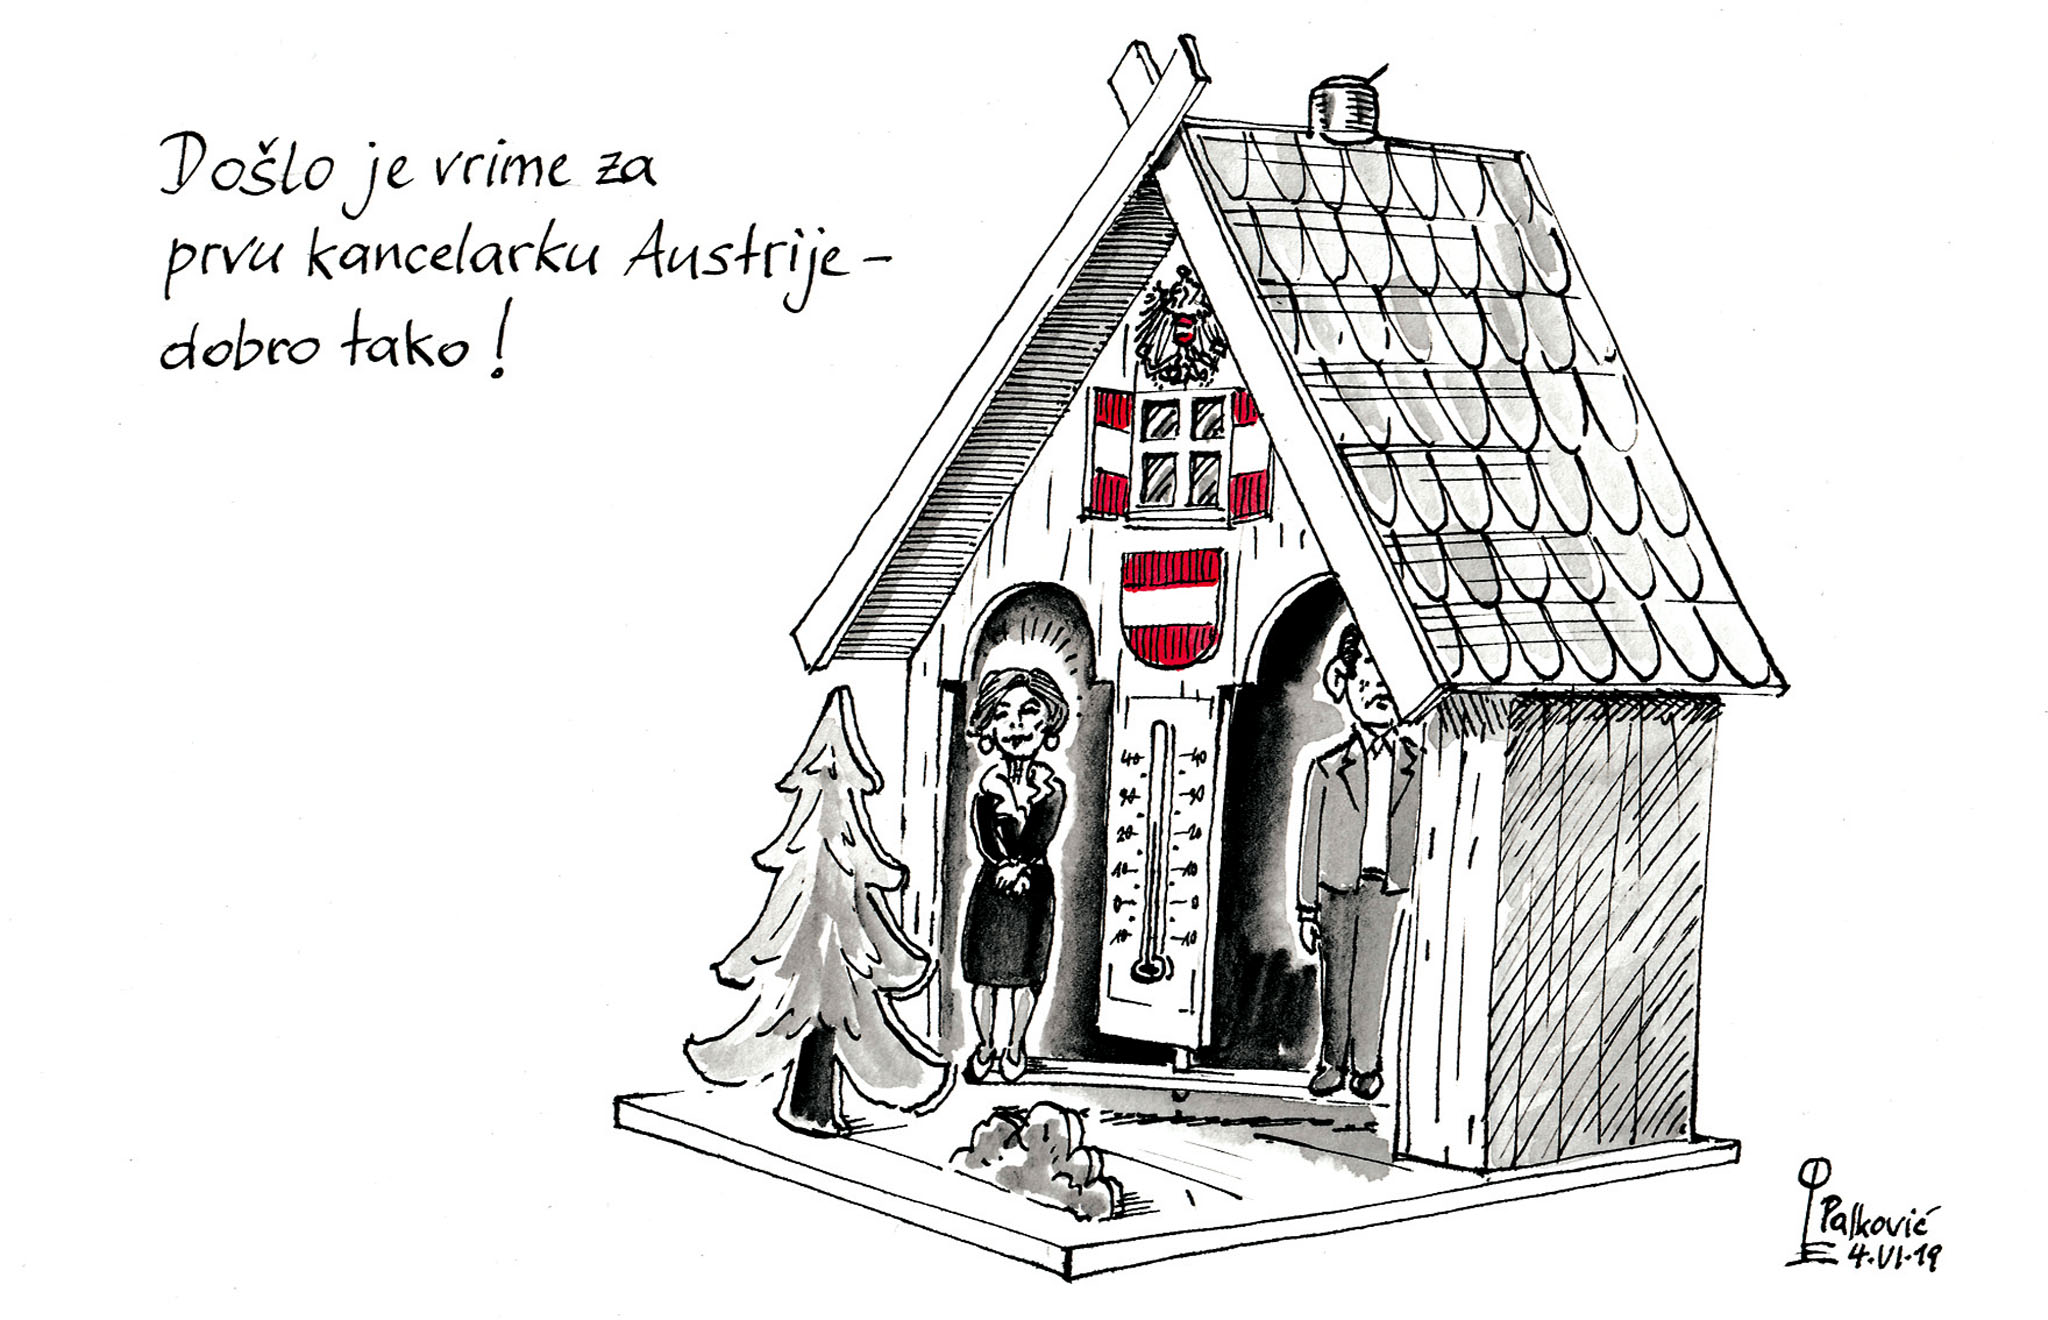 Došlo je vrime za
prvu kancelarku Austrije –
dobro tako!
40 40
30 30
20 20
10 10
0 0
10 10
Palković
4.VI.19